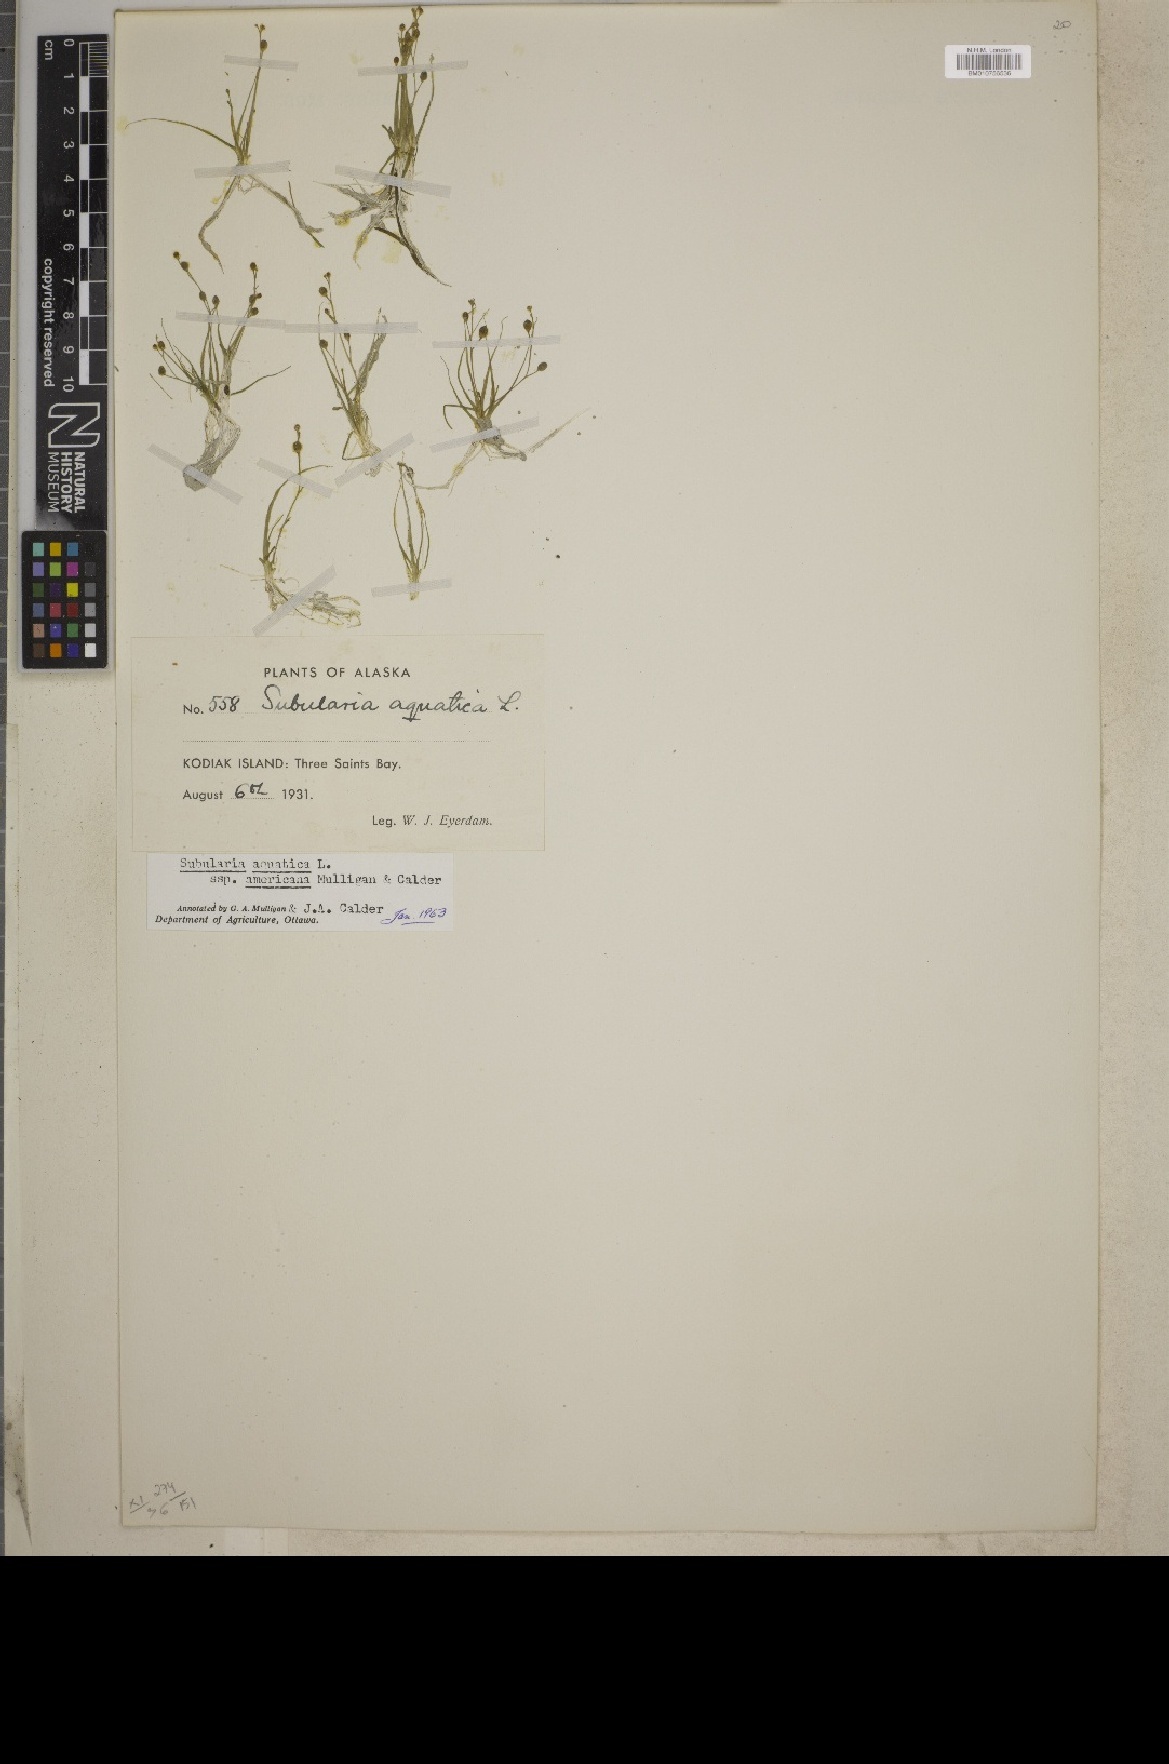 250
N.H.M. London
0 1 2 3 4 5 6 7 8 9 10
cm
copyright reserved
NATURAL
HISTORY
MUSEUM
PLANTS OF ALASKA
No. 558 Subularia aquatica L.
KODIAK ISLAND: Three Saints Bay.
August 6th 1931.
Leg. W. J. Eyerdam.
Subularia aquatica L.
ssp. americana Mulligan & Calder
Annotated by G. A. Mulligan & J.A. Calder Jan. 1963
Department of Agriculture, Ottawa.